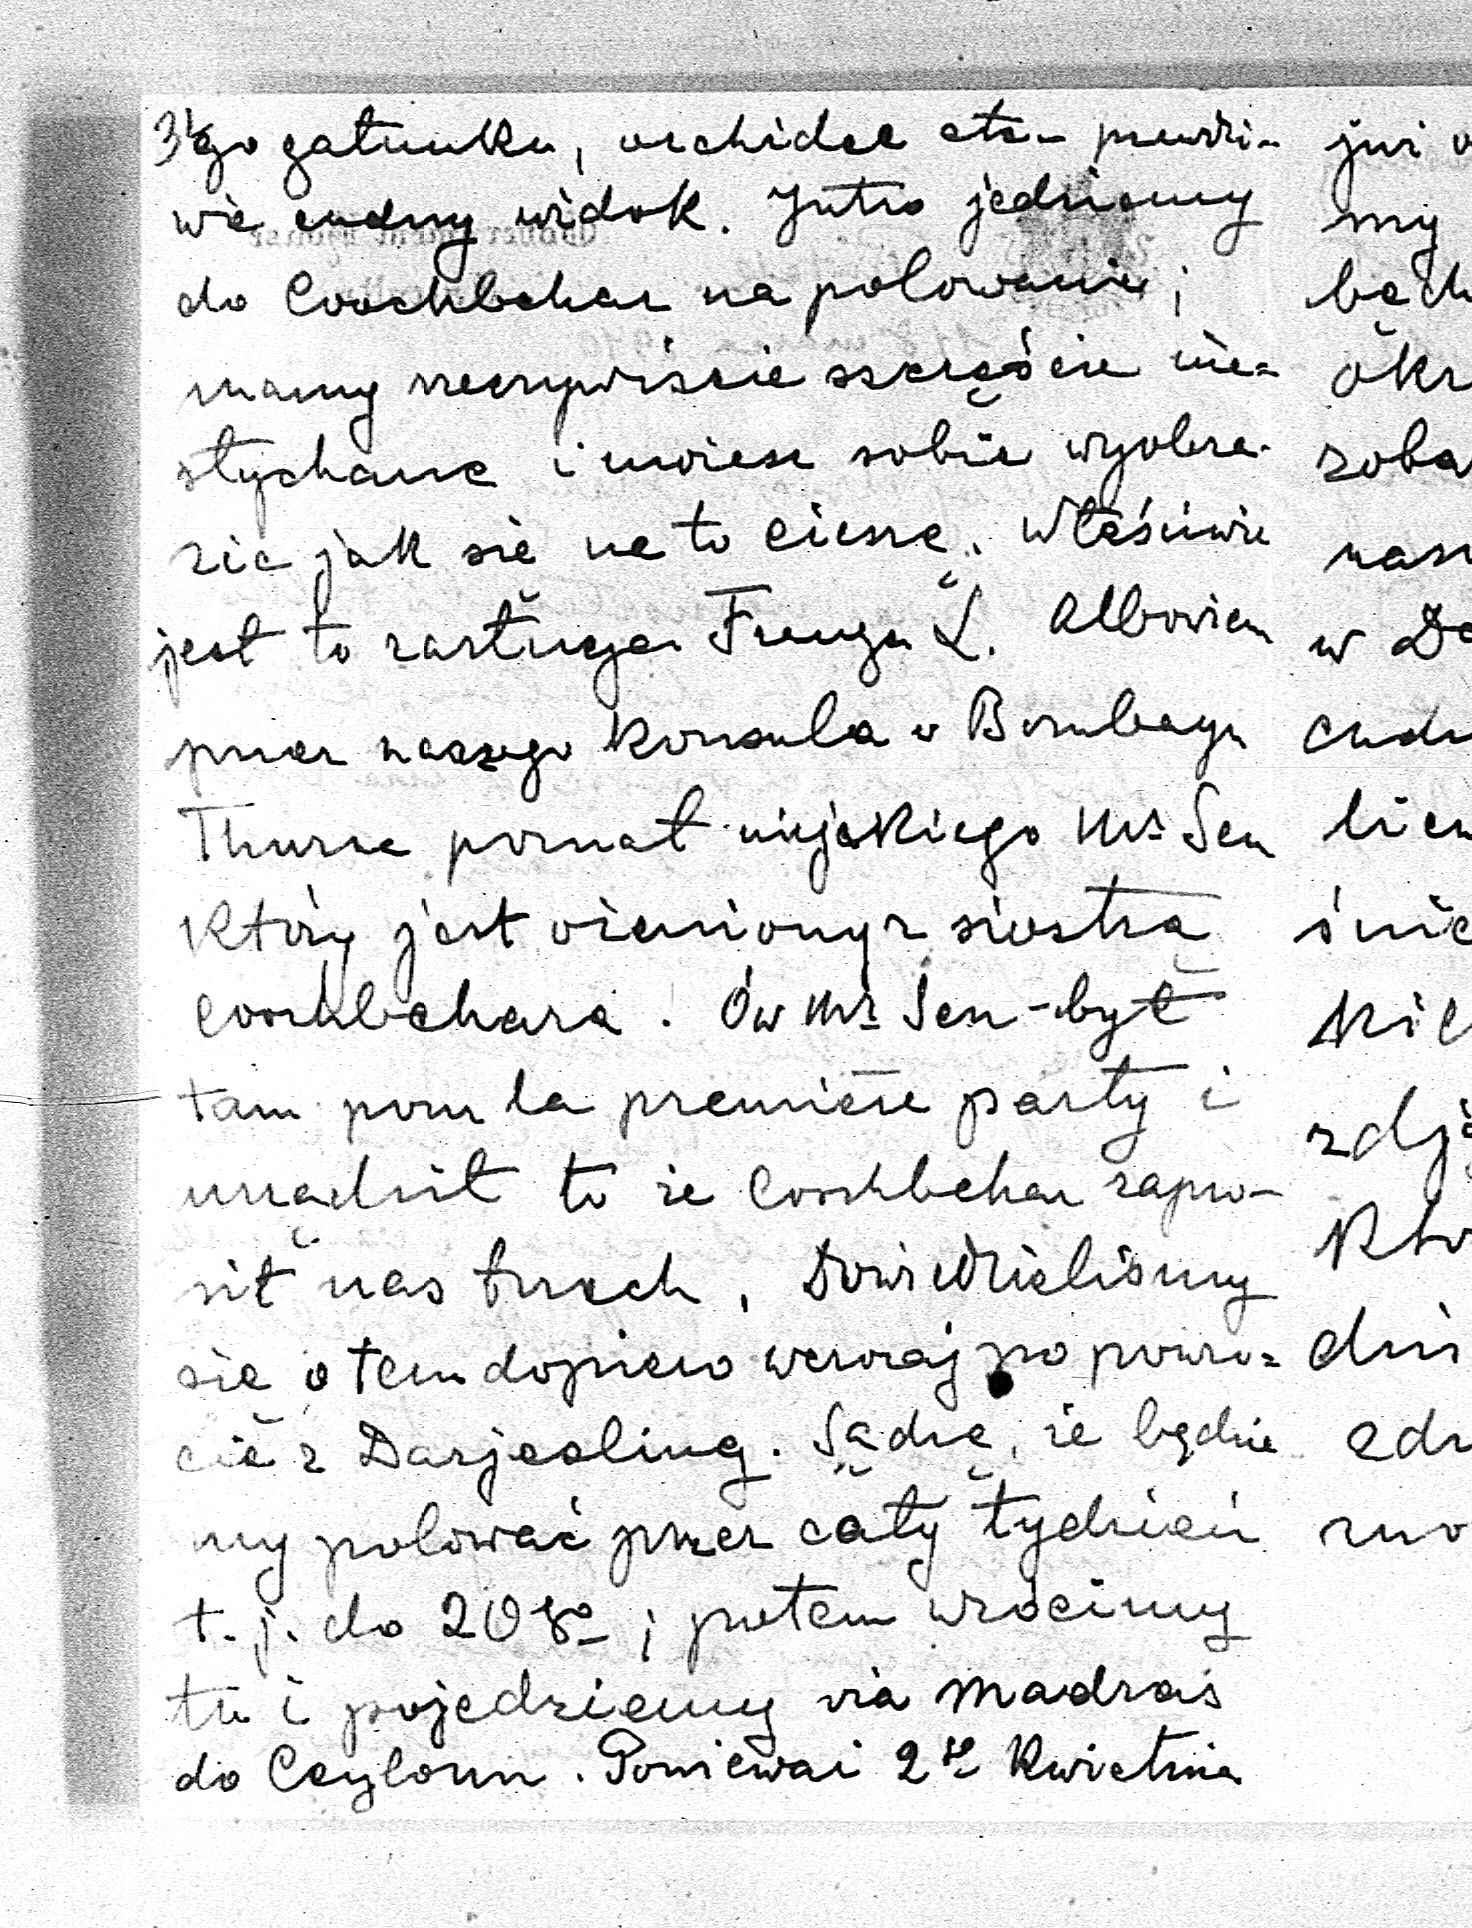 3/ go gatunku, orchidee etc- prawdzi-
wie cudny widok. Jutro jedziemy
do Coochbehar na polowanie;
mamy rzeczywiście szczęście nie=
słychane i możesz sobie wyobra-
zić jak się na to cieszę. Właściwie
jest to zasługa L. Albowiem
przez naszego Konsula w Bombayu
poznał niejakiego Mr Sen
Który jest ożeniony z siostrą
Coochbehara. Ów Mr Sen - był
tam pour la première party i
urządził to że Coochbehar zapro-
sił nas trzech. Dowiedzieliśmy
się o tem dopiero wczoraj po powro=
cie z Darjeeling. Sądzę, że będzie
my polować przez cały tydzień
t. j. do 20go; potem wrócimy
tu i pojedziemy via Madras
do Ceylonu. Ponieważ 2go Kwietnia
już o
my
będz
okr
zoba
nasz
w Da
cudo
śnie
zdję
Któ
dni